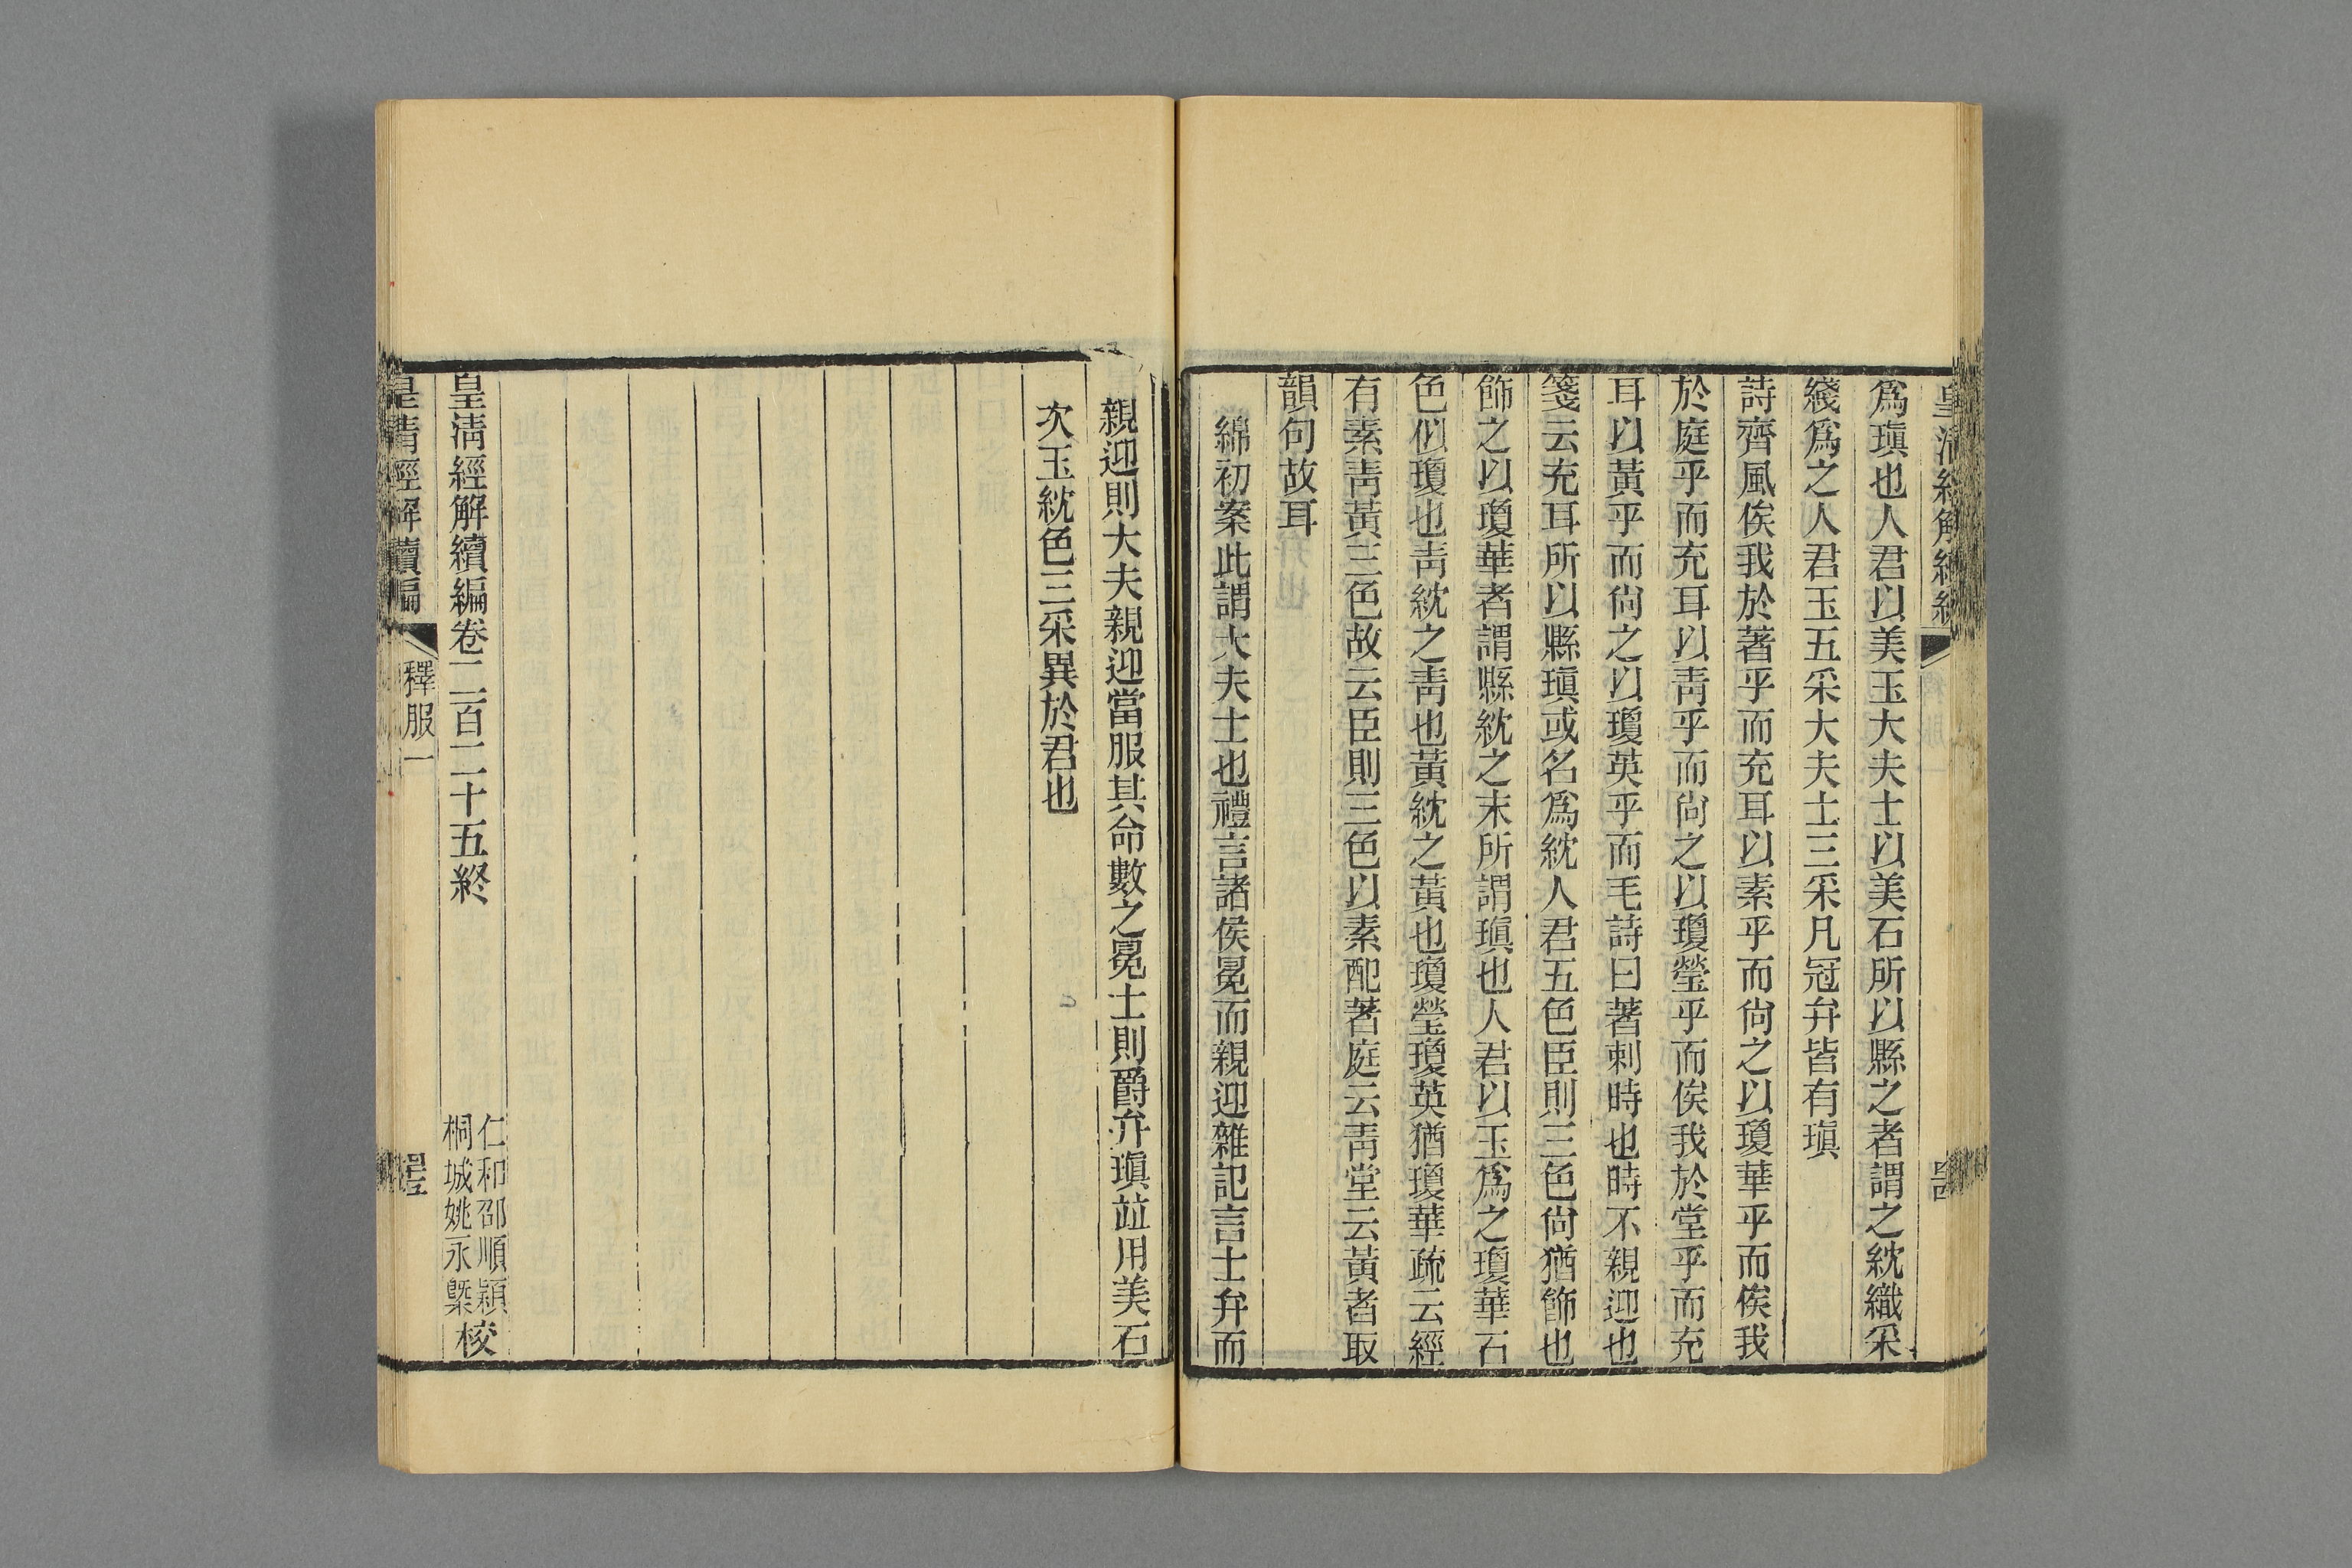 爲瑱也人君以美玉大夫士以美石所以縣之者謂之紞織采
綫爲之人君玉五采大夫士三采凡冠弁皆有瑱
詩齊風俟我於著乎而充耳以素乎而尙之以瓊華乎而俟我
於庭乎而充耳以靑乎而尙之以瓊瑩乎而俟我於堂乎而充
耳以黃乎而尙之以瓊英乎而毛詩曰著刺時也時不親迎也
箋云充耳所以縣瑱或名爲紞人君五色臣則三色尙猶飾也
飾之以瓊華者謂縣紞之末所謂瑱也人君以玉爲之瓊華石
色似瓊也靑紞之靑也黃紞之黃也瓊瑩瓊英猶瓊華疏云經
有素靑黃三色故云臣則三色以素配著庭云靑堂云黃者取
韻句故耳
綿初案此謂大夫士也禮言諸侯冕而親迎雜記言士弁而
親迎則大夫親迎當服其命數之冕士則爵弁瑱竝用美石
次玉紞色三采異於君也
皇淸經解續編卷二百二十五終
仁和邵順潁
桐城姚永㮣
校
皇淸經解續編
釋服一